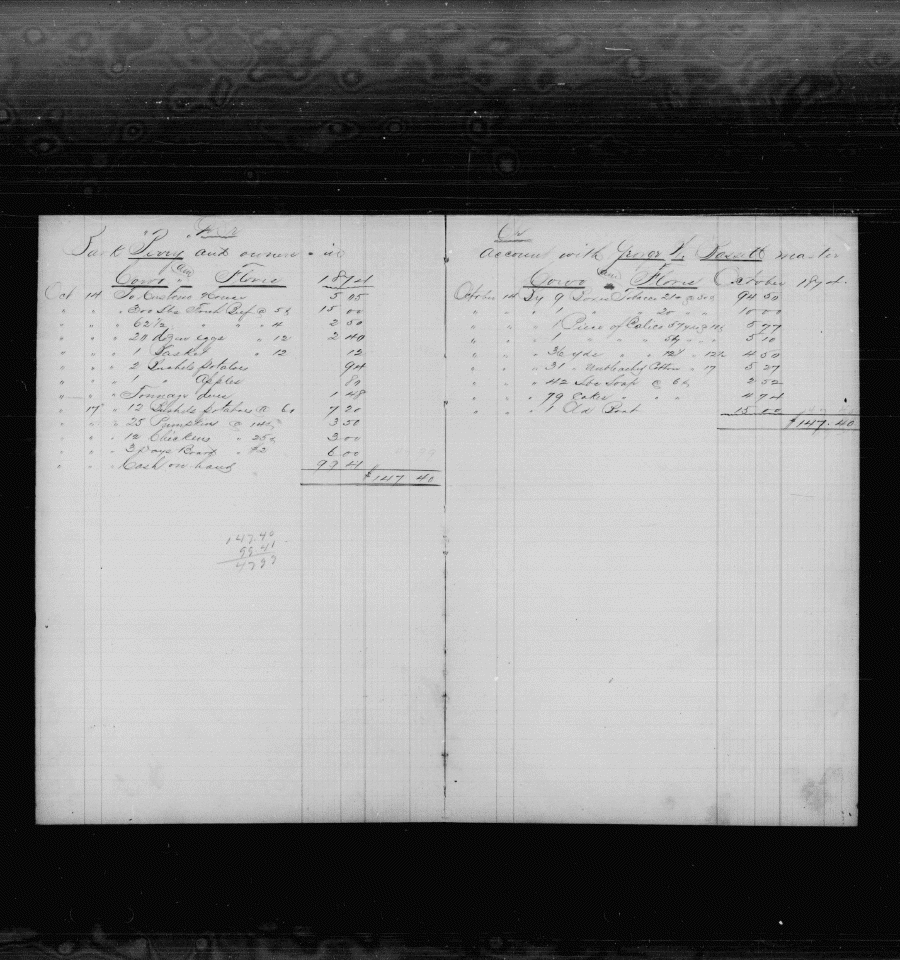 Dr
Bark "Perry" and owners in
Corvo and Flores 1874
Oct 14 To Custom House 5 05
" " " 300 lbs Fresh Beef @ 5¢ 15 00
" " " 62 1/2 " " " 4 2 50
" " " 20 Dozen eggs " 12 2 40
" " " 1 Basket " 12 12
" " " 2 Bushels potatoes 94
" " " 1 " Apples 80
" " " Tonnage dues 1 48
" 17 " 12 Bushels potatoes @ 60 7 20
" " " 25 Pumpkins @ 14¢ 3 50
" " " 12 Chickens " 25¢ 3 00
" " " 3 Days Board " $2 6 00
" " " Cash on hand 99 41
$147 40
147.40
99.41
47 99
Cr
account with master
Corvo and Flores October 1874
October 14 By 9 Boxes Tobacco 210 @ 50¢ 94 50
" " " 1 " " 20 " " 10 00
" " " 1 Piece of Calico 5 77
" " " 1 " " " 5 10
" " " yds " " " 4 50
" " " 31 " Unbleached Cotton " 17 5 27
" " " 42 lbs Soap @ 6¢ 2 52
" " " 79 Cakes " " " 4 74
" " " 1 Old Boat 15 00
$147.40